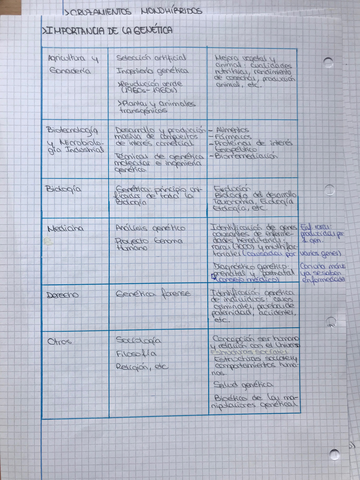 >CRUZAMIENTOS MONOHÍBRIDOS
>IMPORTANCIA DE LA GENÉTICA
Agricultura y
Ganadería
Selección artificial
Ingeniería genética
>Revolución verde
(1940s-1960s)
>Plantas y animales
transgénicos
Mejora vegetal y
animal: cualidades
nutritivas, rendimiento
de cosechas, producción
animal, etc.
Biotecnología
y Microbiolo-
gía Industrial
Desarrollo y producción
masiva de compuestos
de interés comercial
Técnicas de genética
molecular e ingeniería
genética
- Alimentos
- Fármacos
- Proteínas de interés
terapéutico
- Biorremediación
Biología
Genética: principio uni-
ficador de toda la
Biología
Evolución
Biología del desarrollo
Taxonomía, Ecología
Etología, etc
Medicina
Análisis genético
Proyecto Genoma
Humano
Identificación de genes
causantes de enferme-
dades hereditarias y
raras (1000) y multifac-
toriales (causadas por varios genes)
Enf. raras
producidas por
1 gen
Diagnóstico genético
prenatal y postnatal
(consejo médico)
Cuando
ya se saben
enfermedades
Derecho
Genética forense
Identificación genética
de individuos: casos
criminales, pruebas de
paternidad, accidentes,
etc.
Otros
Sociología
Filosofía
Religión, etc.
Concepción ser humano
y relación con el Universo
Estructuras sociales y
comportamientos huma-
nos
Salud genética
Bioética de las ma-
nipulaciones genéticas